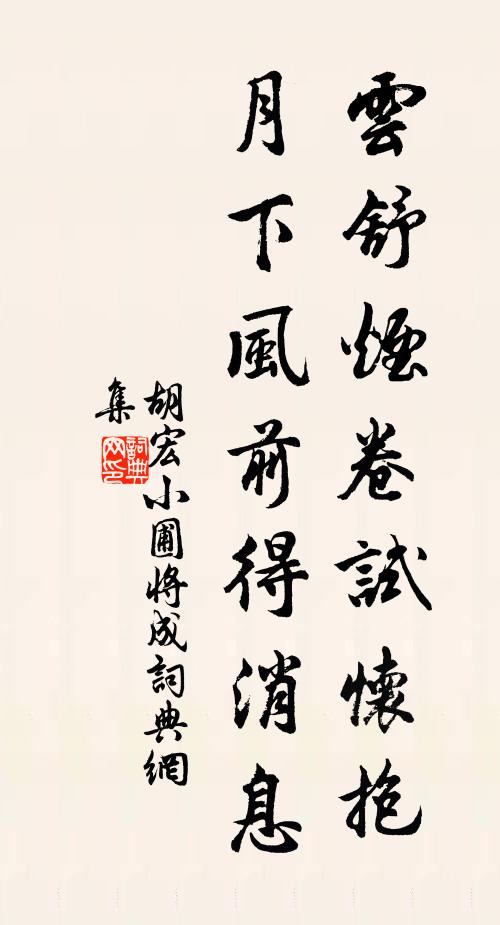 雲舒煙卷試懷抱
月下風前得消息
胡宏小圃將成詞典網
集
詞典網